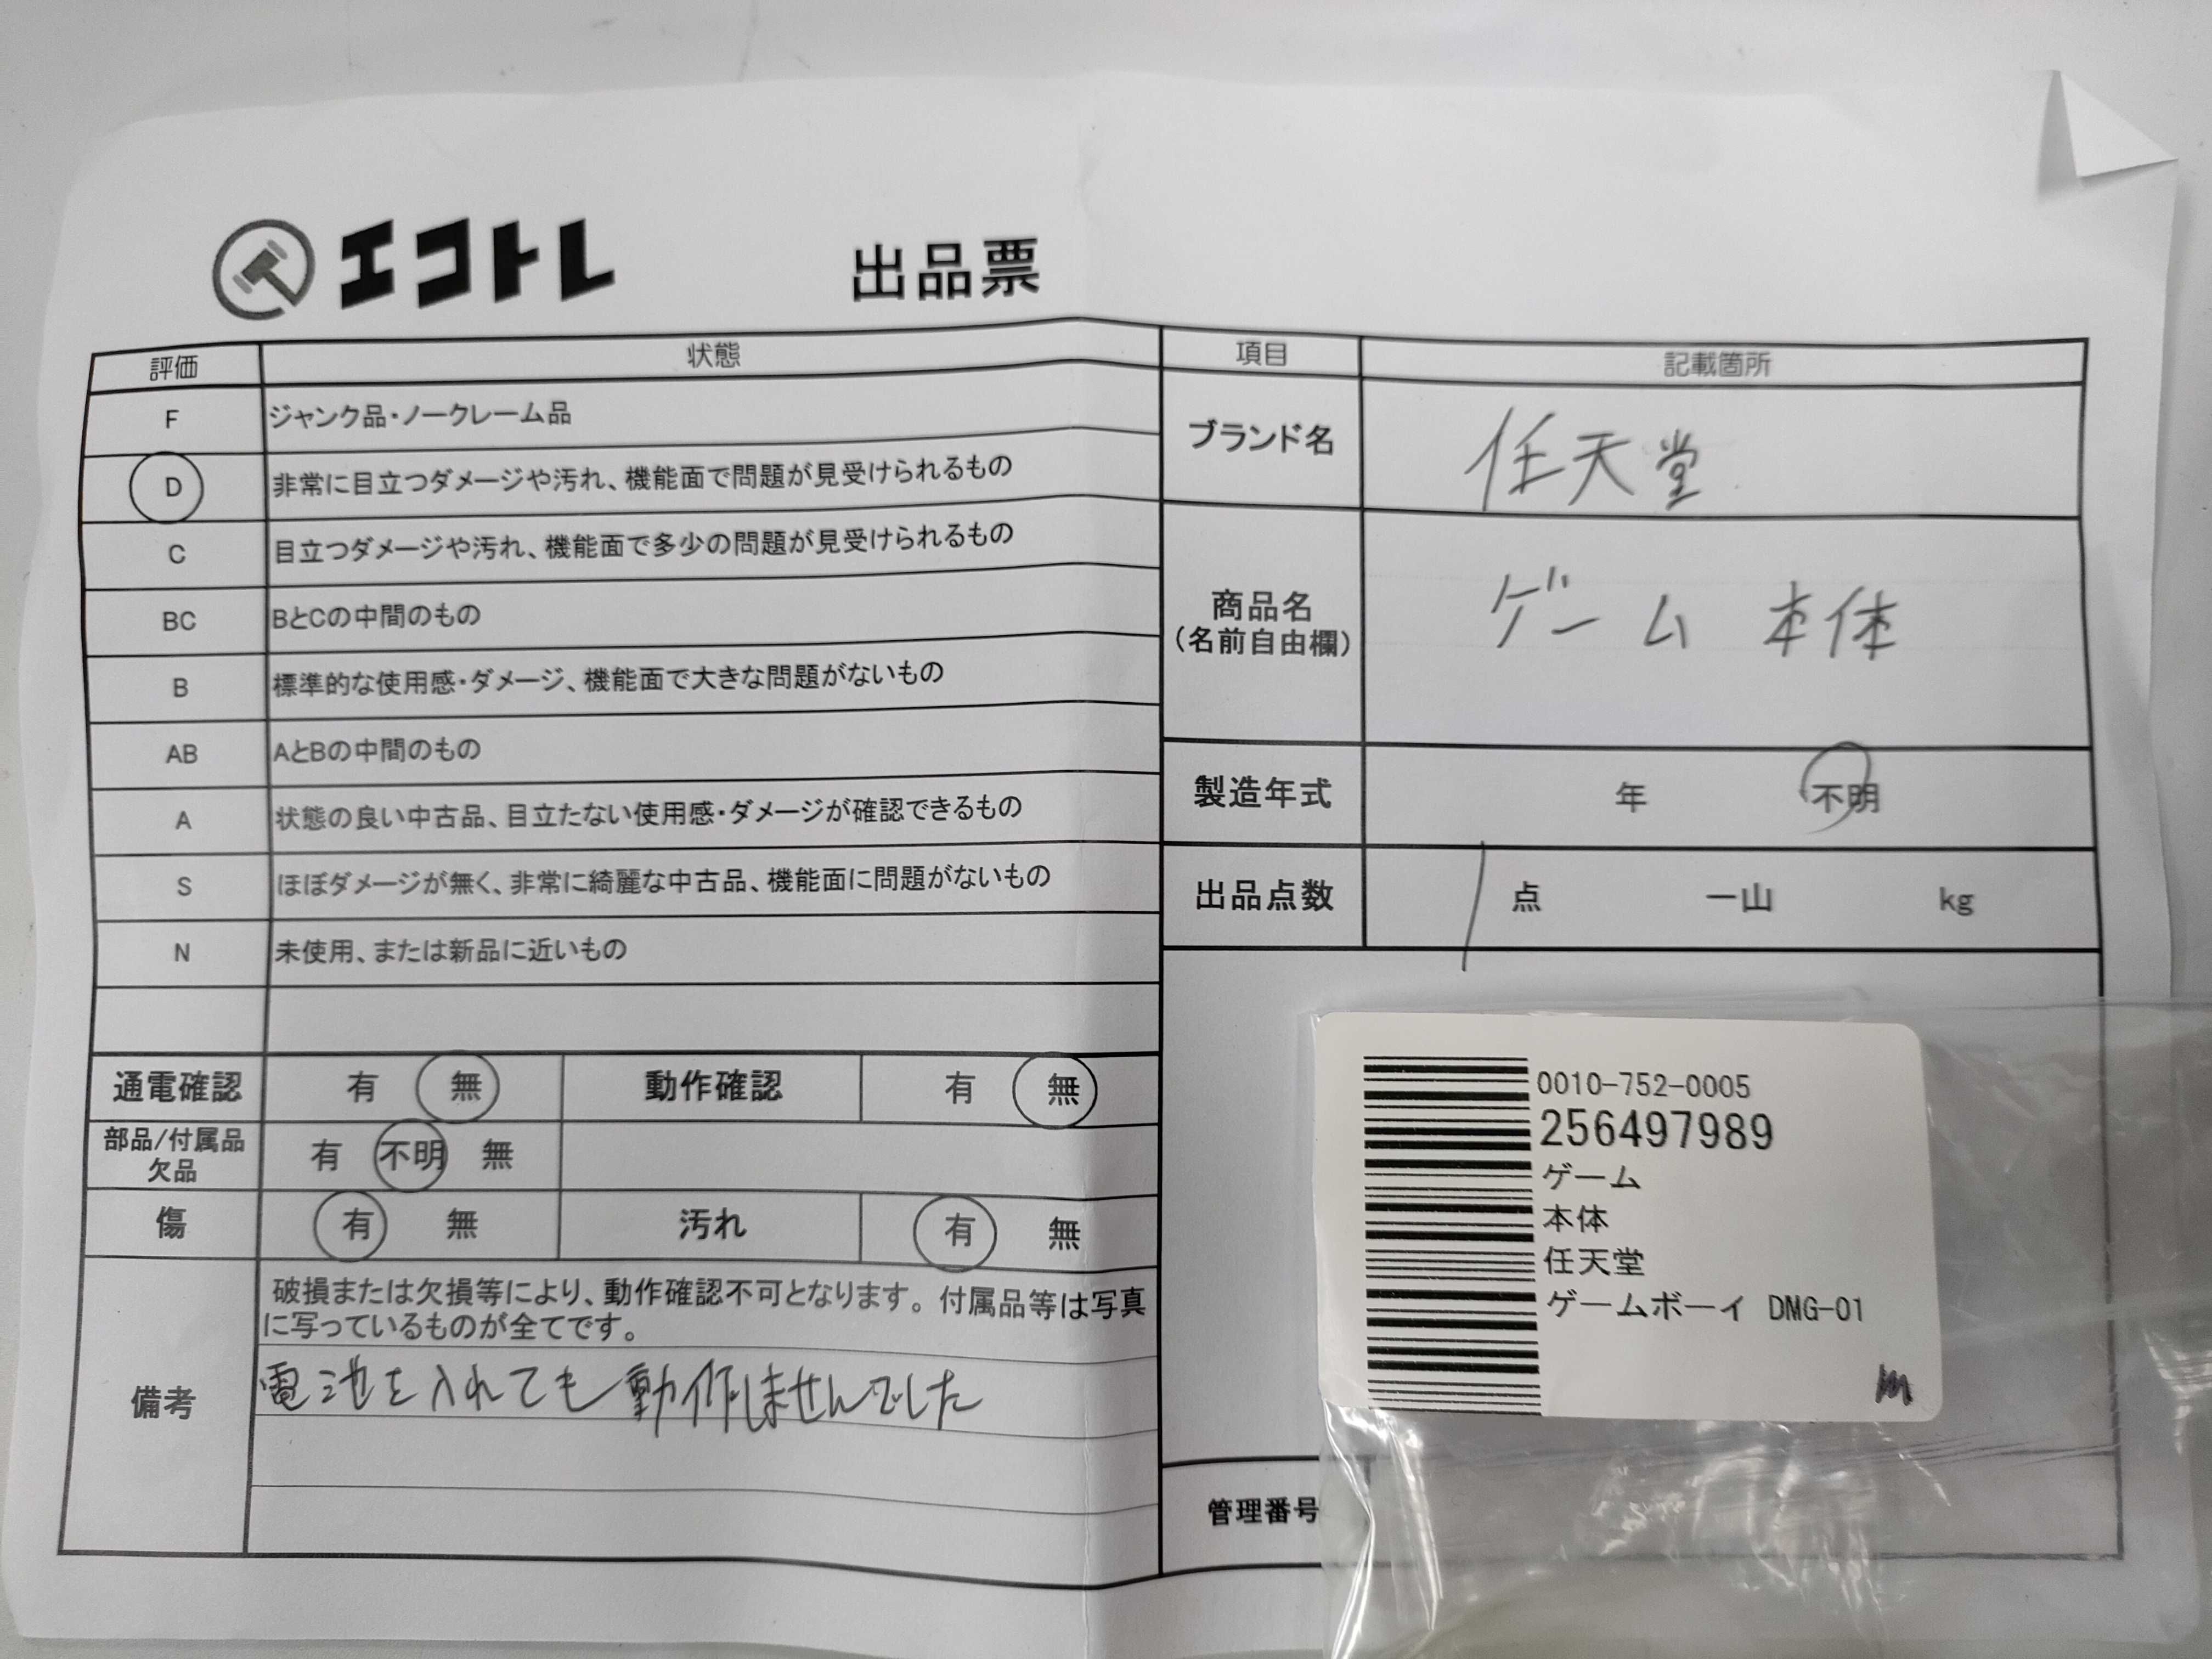 エコトレ 出品票
評価 状態
F ジャンク品・ノークレーム品
D 非常に目立つダメージや汚れ、機能面で問題が見受けられるもの
C 目立つダメージや汚れ、機能面で多少の問題が見受けられるもの
BC BとCの中間のもの
B 標準的な使用感・ダメージ、機能面で大きな問題がないもの
AB AとBの中間のもの
A 状態の良い中古品、目立たない使用感・ダメージが確認できるもの
S ほぼダメージが無く、非常に綺麗な中古品、機能面に問題がないもの
N 未使用、または新品に近いもの
通電確認 有 無 動作確認 有 無
部品/付属品
欠品 有 不明 無
傷 有 無 汚れ 有 無
備考
破損または欠損等により、動作確認不可となります。付属品等は写真
に写っているものが全てです。
電池を入れても動作しませんでした
項目 記載箇所
ブランド名 任天堂
商品名
(名前自由欄) ゲーム 本体
製造年式 年 不明
出品点数 1 点 一山 kg
管理番号
0010-752-0005
256497989
ゲーム
本体
任天堂
ゲームボーイ DMG-01